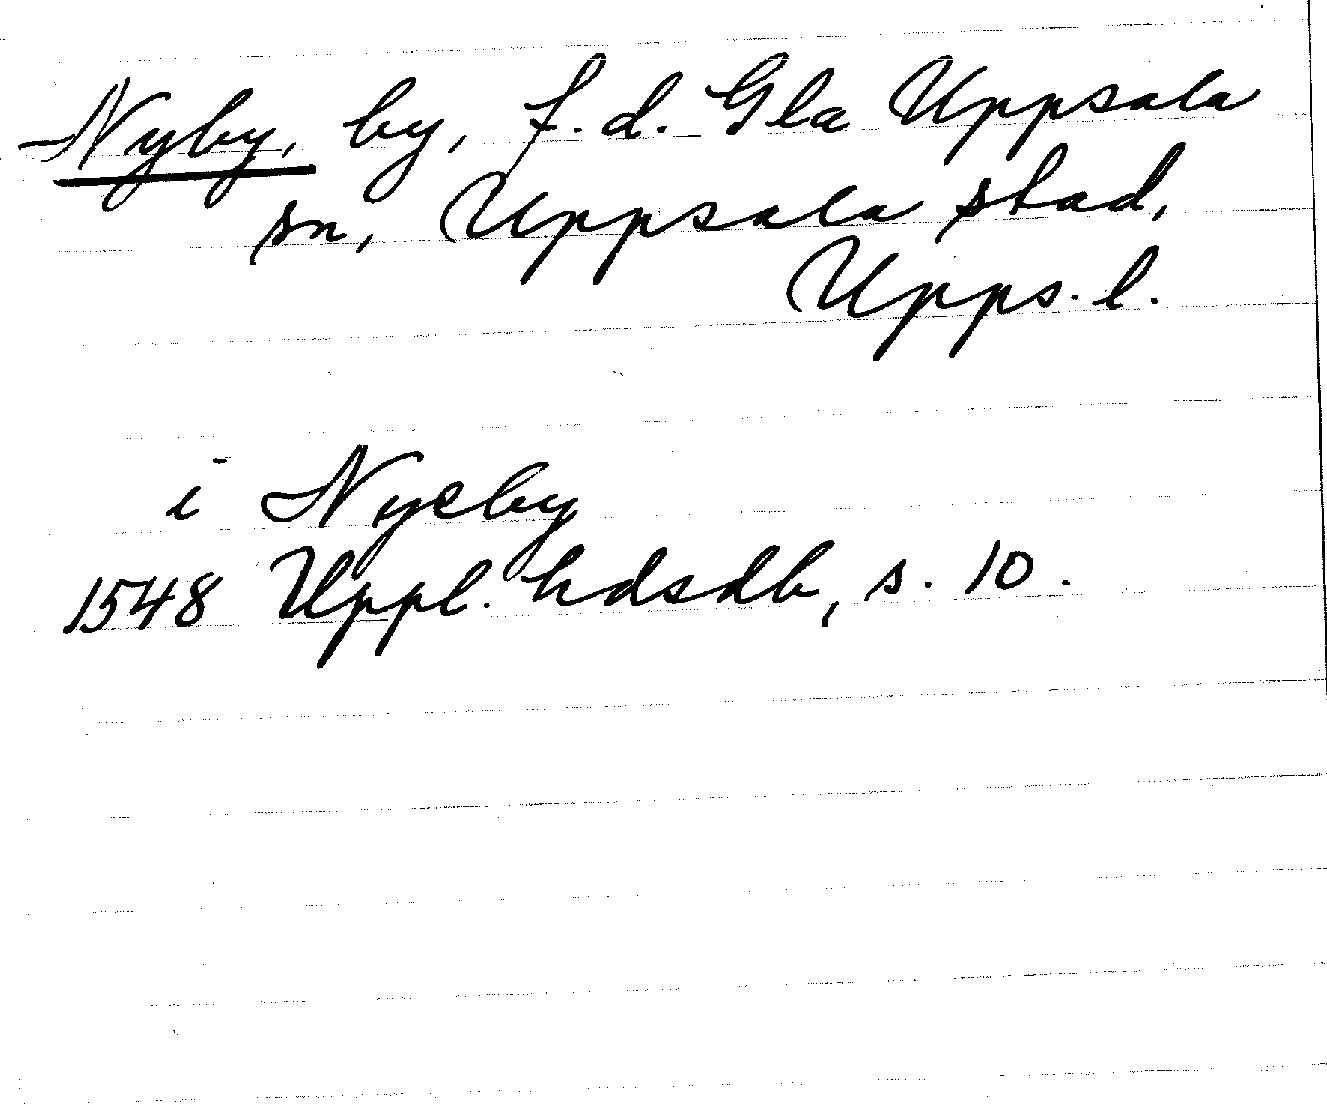 Nyby, by, f.d. Gla Uppsala
sn, Uppsala stad,
Upps. l.
i Nyeby
1548 Uppl. hdsdb, s. 10.